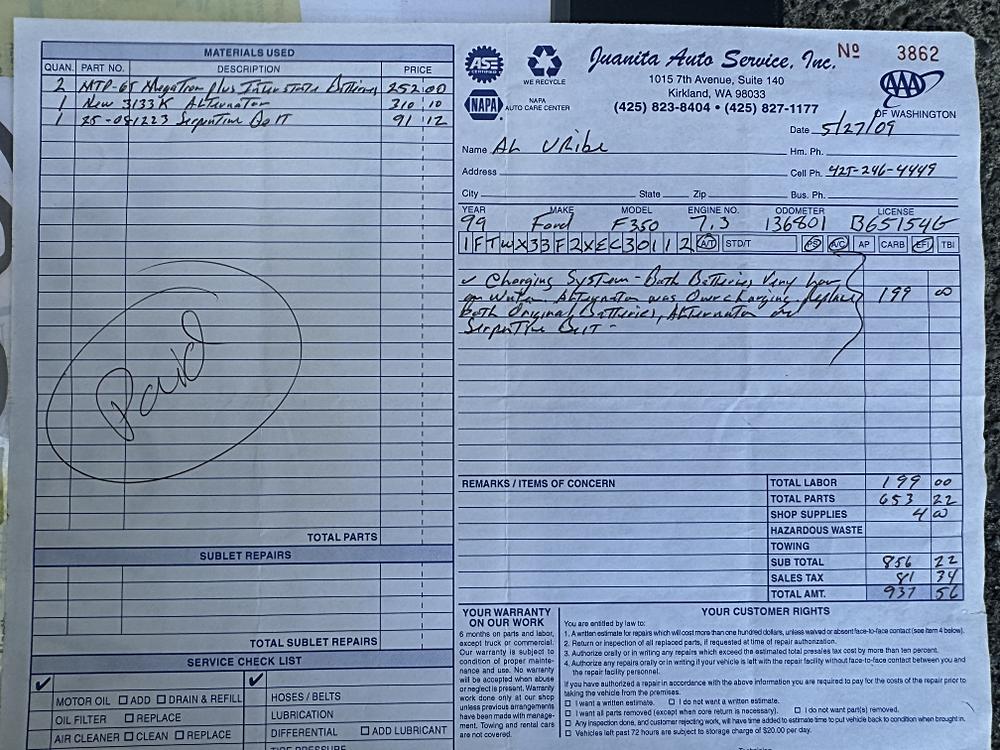 MATERIALS USED
QUAN. PART NO. DESCRIPTION PRICE
2 MTP-65 Megatron plus Interstate Batteries 252 00
1 New 3133K Alternator 310 10
1 25-081223 Serpentine Belt 91 12
Paid
TOTAL PARTS
SUBLET REPAIRS
TOTAL SUBLET REPAIRS
SERVICE CHECK LIST
MOTOR OIL ADD DRAIN & REFILL
OIL FILTER REPLACE
AIR CLEANER CLEAN REPLACE
HOSES / BELTS
LUBRICATION
DIFFERENTIAL ADD LUBRICANT
TIRE PRESSURE
ASE CERTIFIED
WE RECYCLE
NAPA
NAPA AUTO CARE CENTER
Juanita Auto Service, Inc.
1015 7th Avenue, Suite 140
Kirkland, WA 98033
(425) 823-8404 • (425) 827-1177
Nº 3862
AAA
OF WASHINGTON
Date 5/27/09
Name AL URibe Hm. Ph.
Address Cell Ph. 425-246-4449
City State Zip Bus. Ph.
YEAR MAKE MODEL ENGINE NO. ODOMETER LICENSE
99 Ford F350 7.3 136801 B65154G
1FTWX33F2XEC30112 A/T STD/T PS A/C AP CARB EFI TBI
✓ Charging System - Both Batteries Very low
on Water. Alternator was Overcharging Replace 199 00
Both Original Batteries, Alternator
Serpentine Belt -
REMARKS / ITEMS OF CONCERN
TOTAL LABOR 199 00
TOTAL PARTS 653 22
SHOP SUPPLIES 4 00
HAZARDOUS WASTE
TOWING
SUB TOTAL 856 22
SALES TAX 81 34
TOTAL AMT. 937 56
YOUR WARRANTY
ON OUR WORK
6 months on parts and labor,
except truck or commercial.
Our warranty is subject to
condition of proper mainte-
nance and use. No warranty
will be accepted when abuse
or neglect is present. Warranty
work done only at our shop
unless previous arrangements
have been made with manage-
ment. Towing and rental cars
are not covered.
YOUR CUSTOMER RIGHTS
You are entitled by law to:
1. A written estimate for repairs which will cost more than one hundred dollars, unless waived or absent face-to-face contact (see item 4 below).
2. Return or inspection of all replaced parts, if requested at time of repair authorization.
3. Authorize orally or in writing any repairs which exceed the estimated total presales tax cost by more than ten percent.
4. Authorize any repairs orally or in writing if your vehicle is left with the repair facility without face-to-face contact between you and
the repair facility personnel.
If you have authorized a repair in accordance with the above information you are required to pay for the costs of the repair prior to
taking the vehicle from the premises.
I want a written estimate. I do not want a written estimate.
I want all parts removed (except when core return is necessary). I do not want part(s) removed.
Any inspection done, and customer rejecting work, will have time added to estimate time to put vehicle back to condition when brought in.
Vehicles left past 72 hours are subject to storage charge of $20.00 per day.